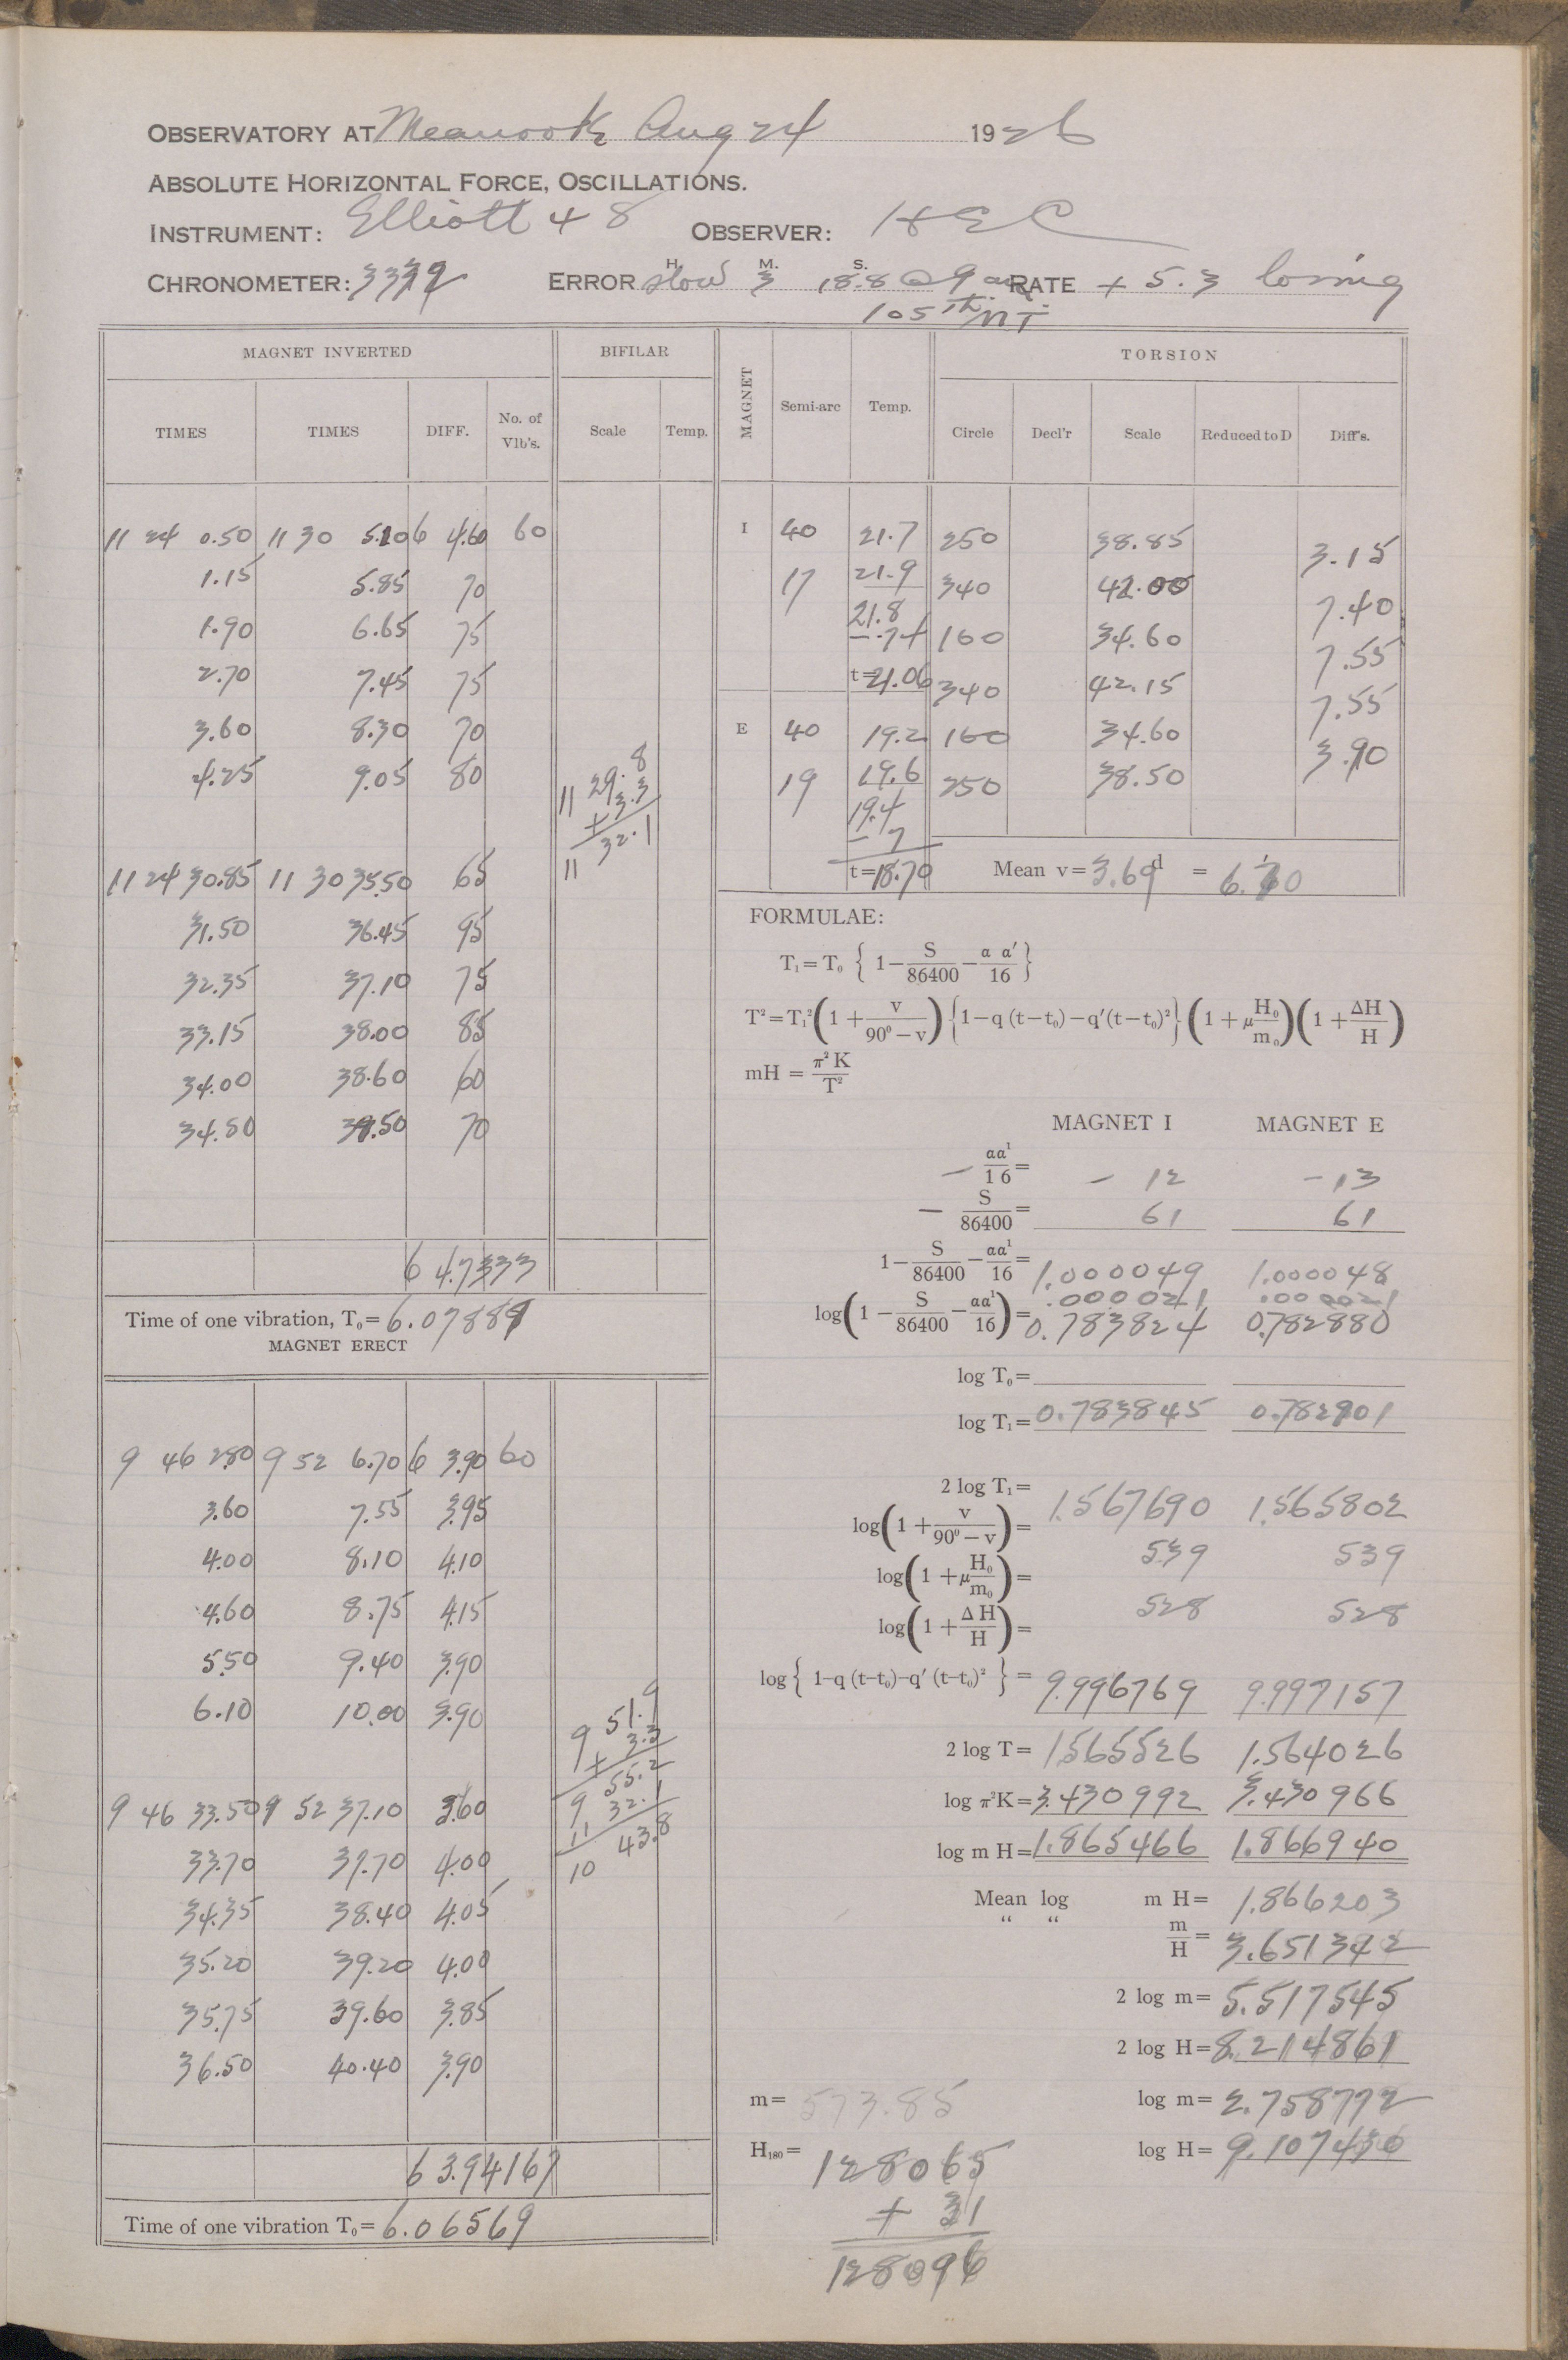 OBSERVATORY AT Meanook Aug 24 1926
ABSOLUTE HORIZONTAL FORCE, OSCILLATIONS.
INSTRUMENT: Elliott 48 OBSERVER: HEC
CHRONOMETER: 3392 ERROR H. M. S. slow 3 18.8 @ 9 am RATE + 5.3 losing
105th MT
MAGNET INVERTED BIFILAR
TIMES TIMES DIFF. No. of Vib's. Scale Temp.
11 24 0.50 11 30 5.10 6 4.60 60
1.15 5.85 70
1.90 6.65 75
2.70 7.45 75
3.60 8.30 70
4.25 9.05 80
11 29.8
+ 3.3
11 32.1
11 24 30.85 11 30 35.50 65
31.50 36.45 95
32.35 37.10 75
33.15 38.00 85
34.00 38.60 60
34.80 39.50 70
6 4.7333
Time of one vibration, T₀= 6.07889
MAGNET ERECT
9 46 2.80 9 52 6.70 6 3.90 60
3.60 7.55 3.95
4.00 8.10 4.10
4.60 8.75 4.15
5.50 9.40 3.90
6.10 10.00 3.90
9 51.9
+ 3.3
9 55.2
11 32.1
10 43.8
9 46 33.50 9 52 37.10 3.60
33.70 37.70 4.00
34.35 38.40 4.05
35.20 39.20 4.00
35.75 39.60 3.85
36.50 40.40 3.90
6 3.94167
Time of one vibration T₀= 6.06569
MAGNET Semi-arc Temp. TORSION
Circle Decl'r Scale Reduced to D Diff's.
I 40 21.7 250 38.85
3.15
17 21.9 340 42.00
21.8 7.40
-.74 160 34.60
7.55
t=21.06 340 42.15
7.55
E 40 19.2 160 34.60
3.90
19 19.6 250 38.50
19.4
- 7
t=18.70 Mean v= 3.69d = 6.'70
FORMULAE:
T₁=T₀ { 1 − S/86400 − a a'/16 }
T²=T₁²(1 + v/90°−v) {1−q (t−t₀)−q'(t−t₀)²} (1 + μ H₀/m₀)(1 + ΔH/H)
mH = π²K/T²
MAGNET I MAGNET E
− aa¹/16 = − 12 − 13
− S/86400 = 61 61
1 − S/86400 − aa¹/16 = 1.000049 1.000048
.000021 .000021
log(1 − S/86400 − aa¹/16) = 0.783824 0.782880
log T₀=
log T₁= 0.783845 0.782901
2 log T₁= 1.567690 1.565802
log(1 + v/90°−v) = 539 539
log(1 + μ H₀/m₀) = 528 528
log(1 + ΔH/H) =
log { 1−q (t−t₀)−q' (t−t₀)² } = 9.996769 9.997157
2 log T= 1.565526 1.564026
log π²K= 3.430992 3.430966
log m H= 1.865466 1.866940
Mean log m H= 1.866203
“ “ m/H = 3.651342
2 log m= 5.517545
2 log H= 8.214861
m= 573.85 log m= 2.758772
H₁₈₀= 128065 log H= 9.107430
+ 31
128096